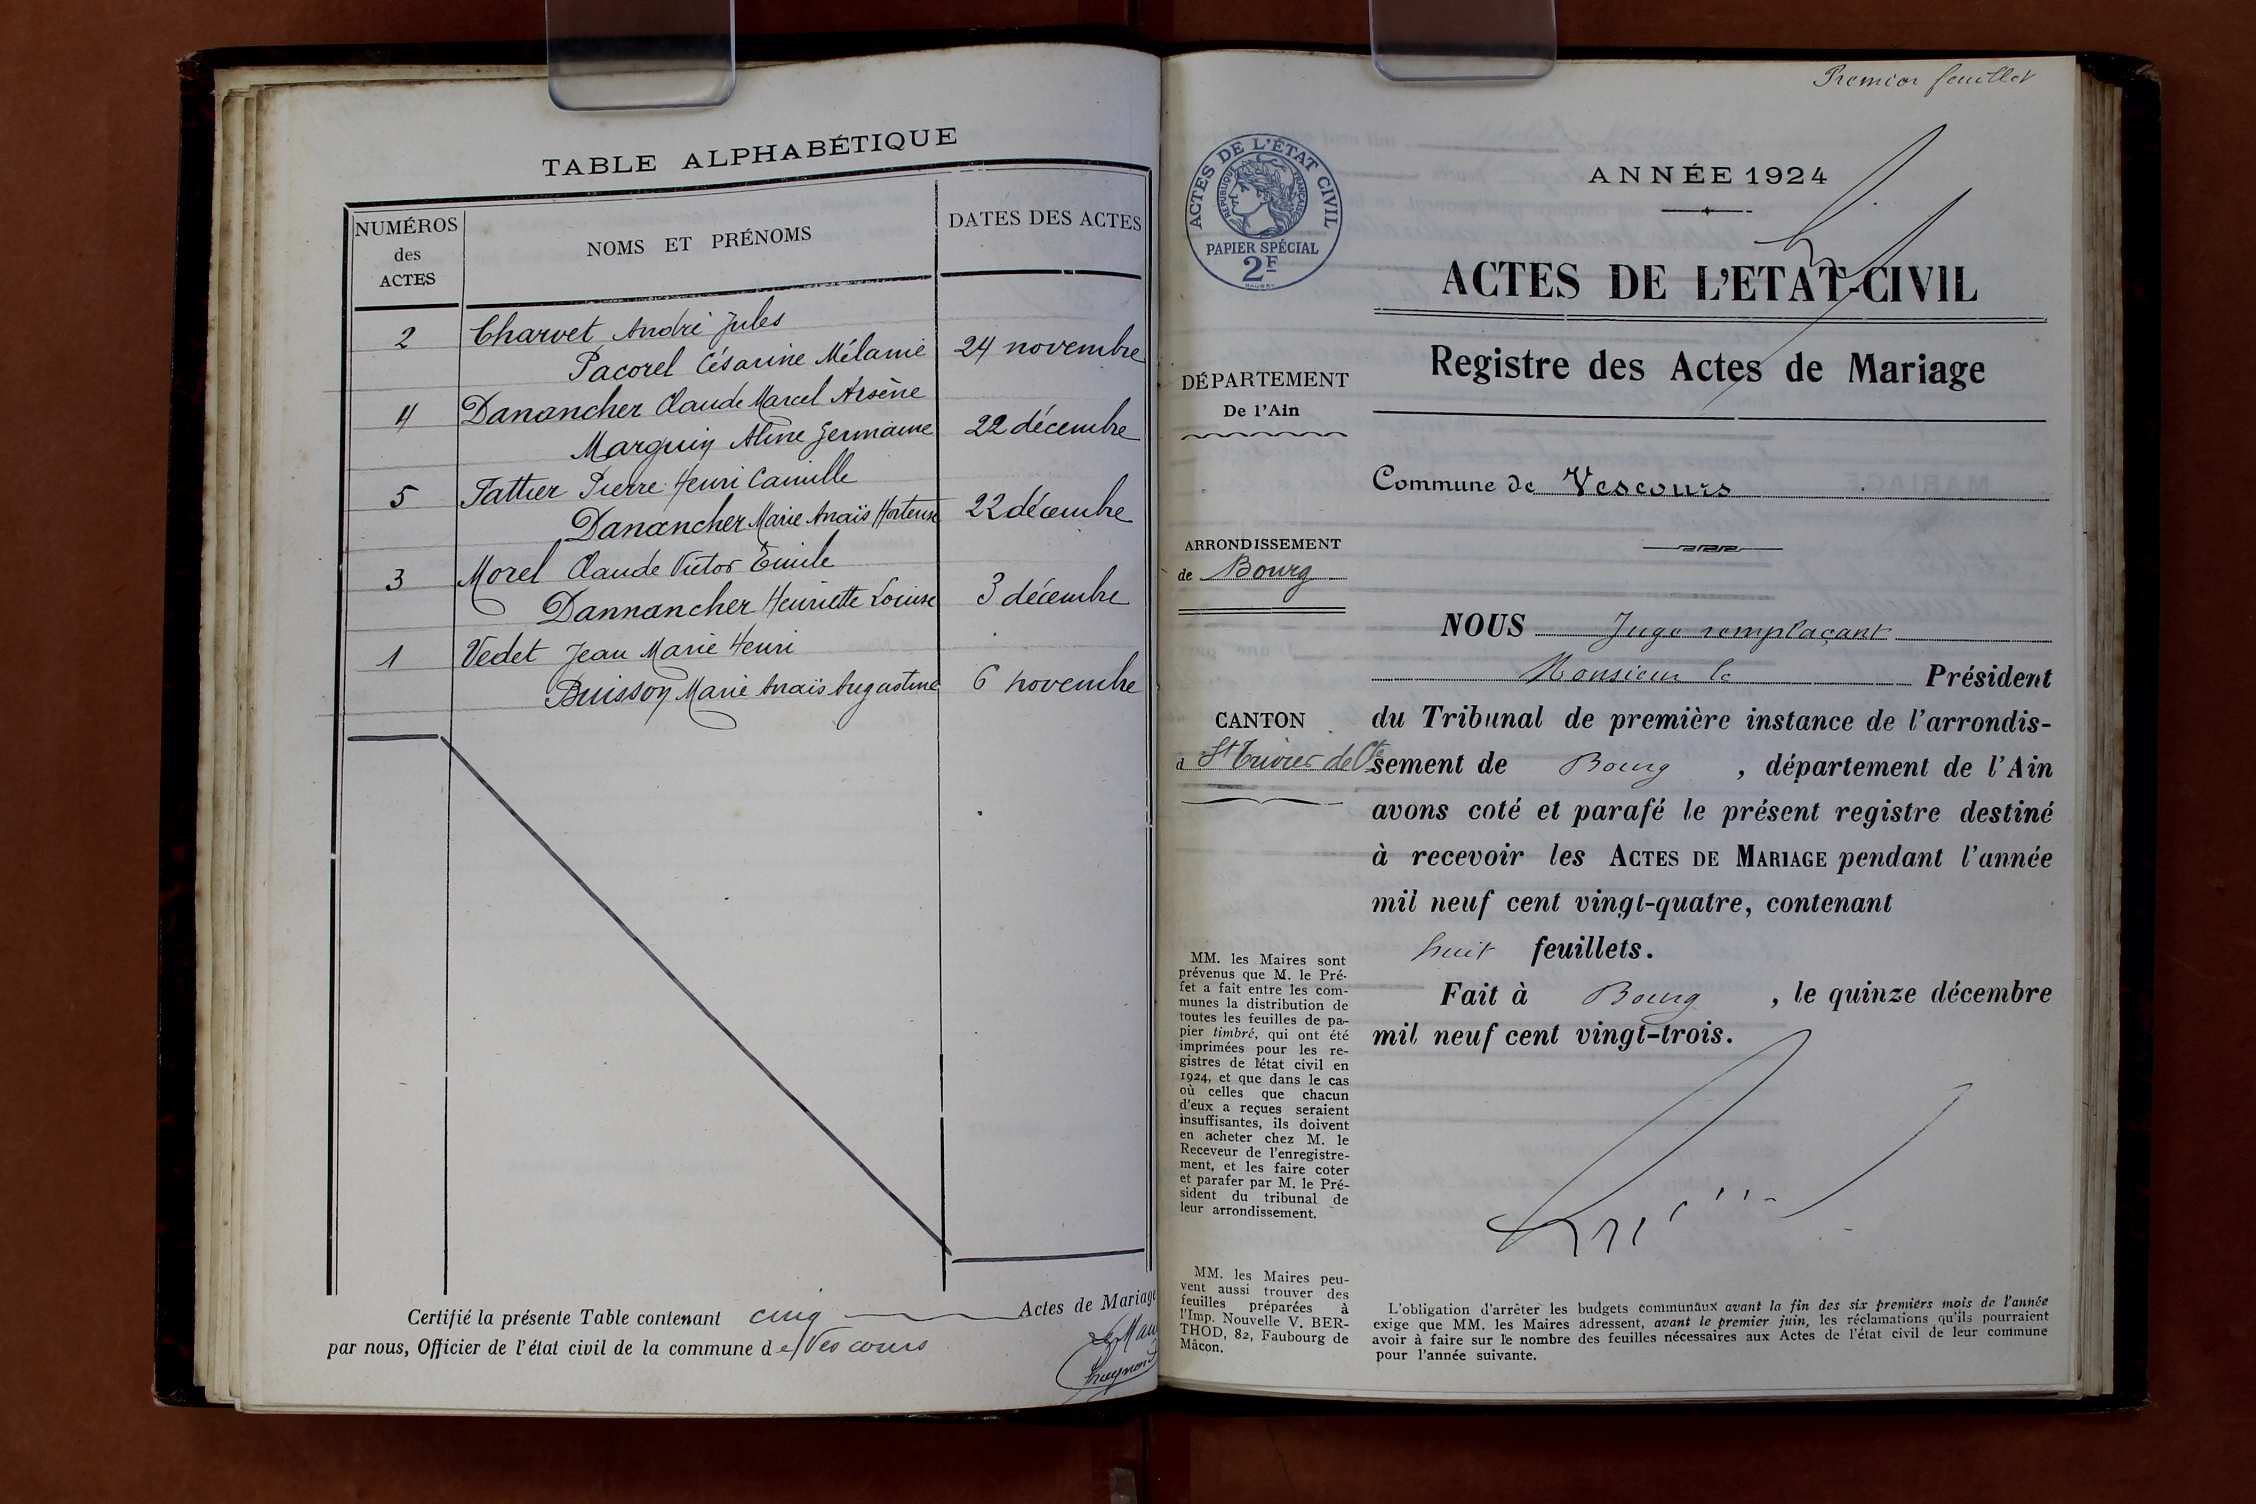 TABLE ALPHABÉTIQUE
NUMÉROS
des
ACTES
NOMS ET PRÉNOMS
DATES DES ACTES
2 Charvet André Jules
Pacorel Césarine Mélanie 24 novembre
4 Danancher Claude Marcel Arsène
Marguin Aline Germaine 22 décembre
5 Fattier Pierre Henri Camille
Danancher Marie Anaïs Hortense 22 décembre
3 Morel Claude Victor Emile
Dannancher Henriette Louise 3 décembre
1 Vedet Jean Marie Henri
Buisson Marie Anaïs Augustine 6 novembre
Certifié la présente Table contenant cinq Actes de Mariage
par nous, Officier de l'état civil de la commune de Vescours
Le Mai
Premier feuillet
ACTES DE L'ÉTAT CIVIL
RÉPUBLIQUE FRANÇAISE
PAPIER SPÉCIAL
2F
ANNÉE 1924
ACTES DE L'ETAT-CIVIL
Registre des Actes de Mariage
DÉPARTEMENT
De l'Ain
Commune de Vescours
ARRONDISSEMENT
de Bourg
CANTON
d St Trivier de Ctes
NOUS Juge remplaçant
Monsieur le Président
du Tribunal de première instance de l'arrondis-
sement de Bourg, département de l'Ain
avons coté et parafé le présent registre destiné
à recevoir les ACTES DE MARIAGE pendant l'année
mil neuf cent vingt-quatre, contenant
huit feuillets.
Fait à Bourg, le quinze décembre
mil neuf cent vingt-trois.
MM. les Maires sont
prévenus que M. le Pré-
fet a fait entre les com-
munes la distribution de
toutes les feuilles de pa-
pier timbré, qui ont été
imprimées pour les re-
gistres de l'état civil en
1924, et que dans le cas
où celles que chacun
d'eux a reçues seraient
insuffisantes, ils doivent
en acheter chez M. le
Receveur de l'enregistre-
ment, et les faire coter
et parafer par M. le Pré-
sident du tribunal de
leur arrondissement.
MM. les Maires peu-
vent aussi trouver des
feuilles préparées à
l'Imp. Nouvelle V. BER-
THOD, 82, Faubourg de
Mâcon.
L'obligation d'arrêter les budgets communaux avant la fin des six premiers mois de l'année
exige que MM. les Maires adressent, avant le premier juin, les réclamations qu'ils pourraient
avoir à faire sur le nombre des feuilles nécessaires aux Actes de l'état civil de leur commune
pour l'année suivante.